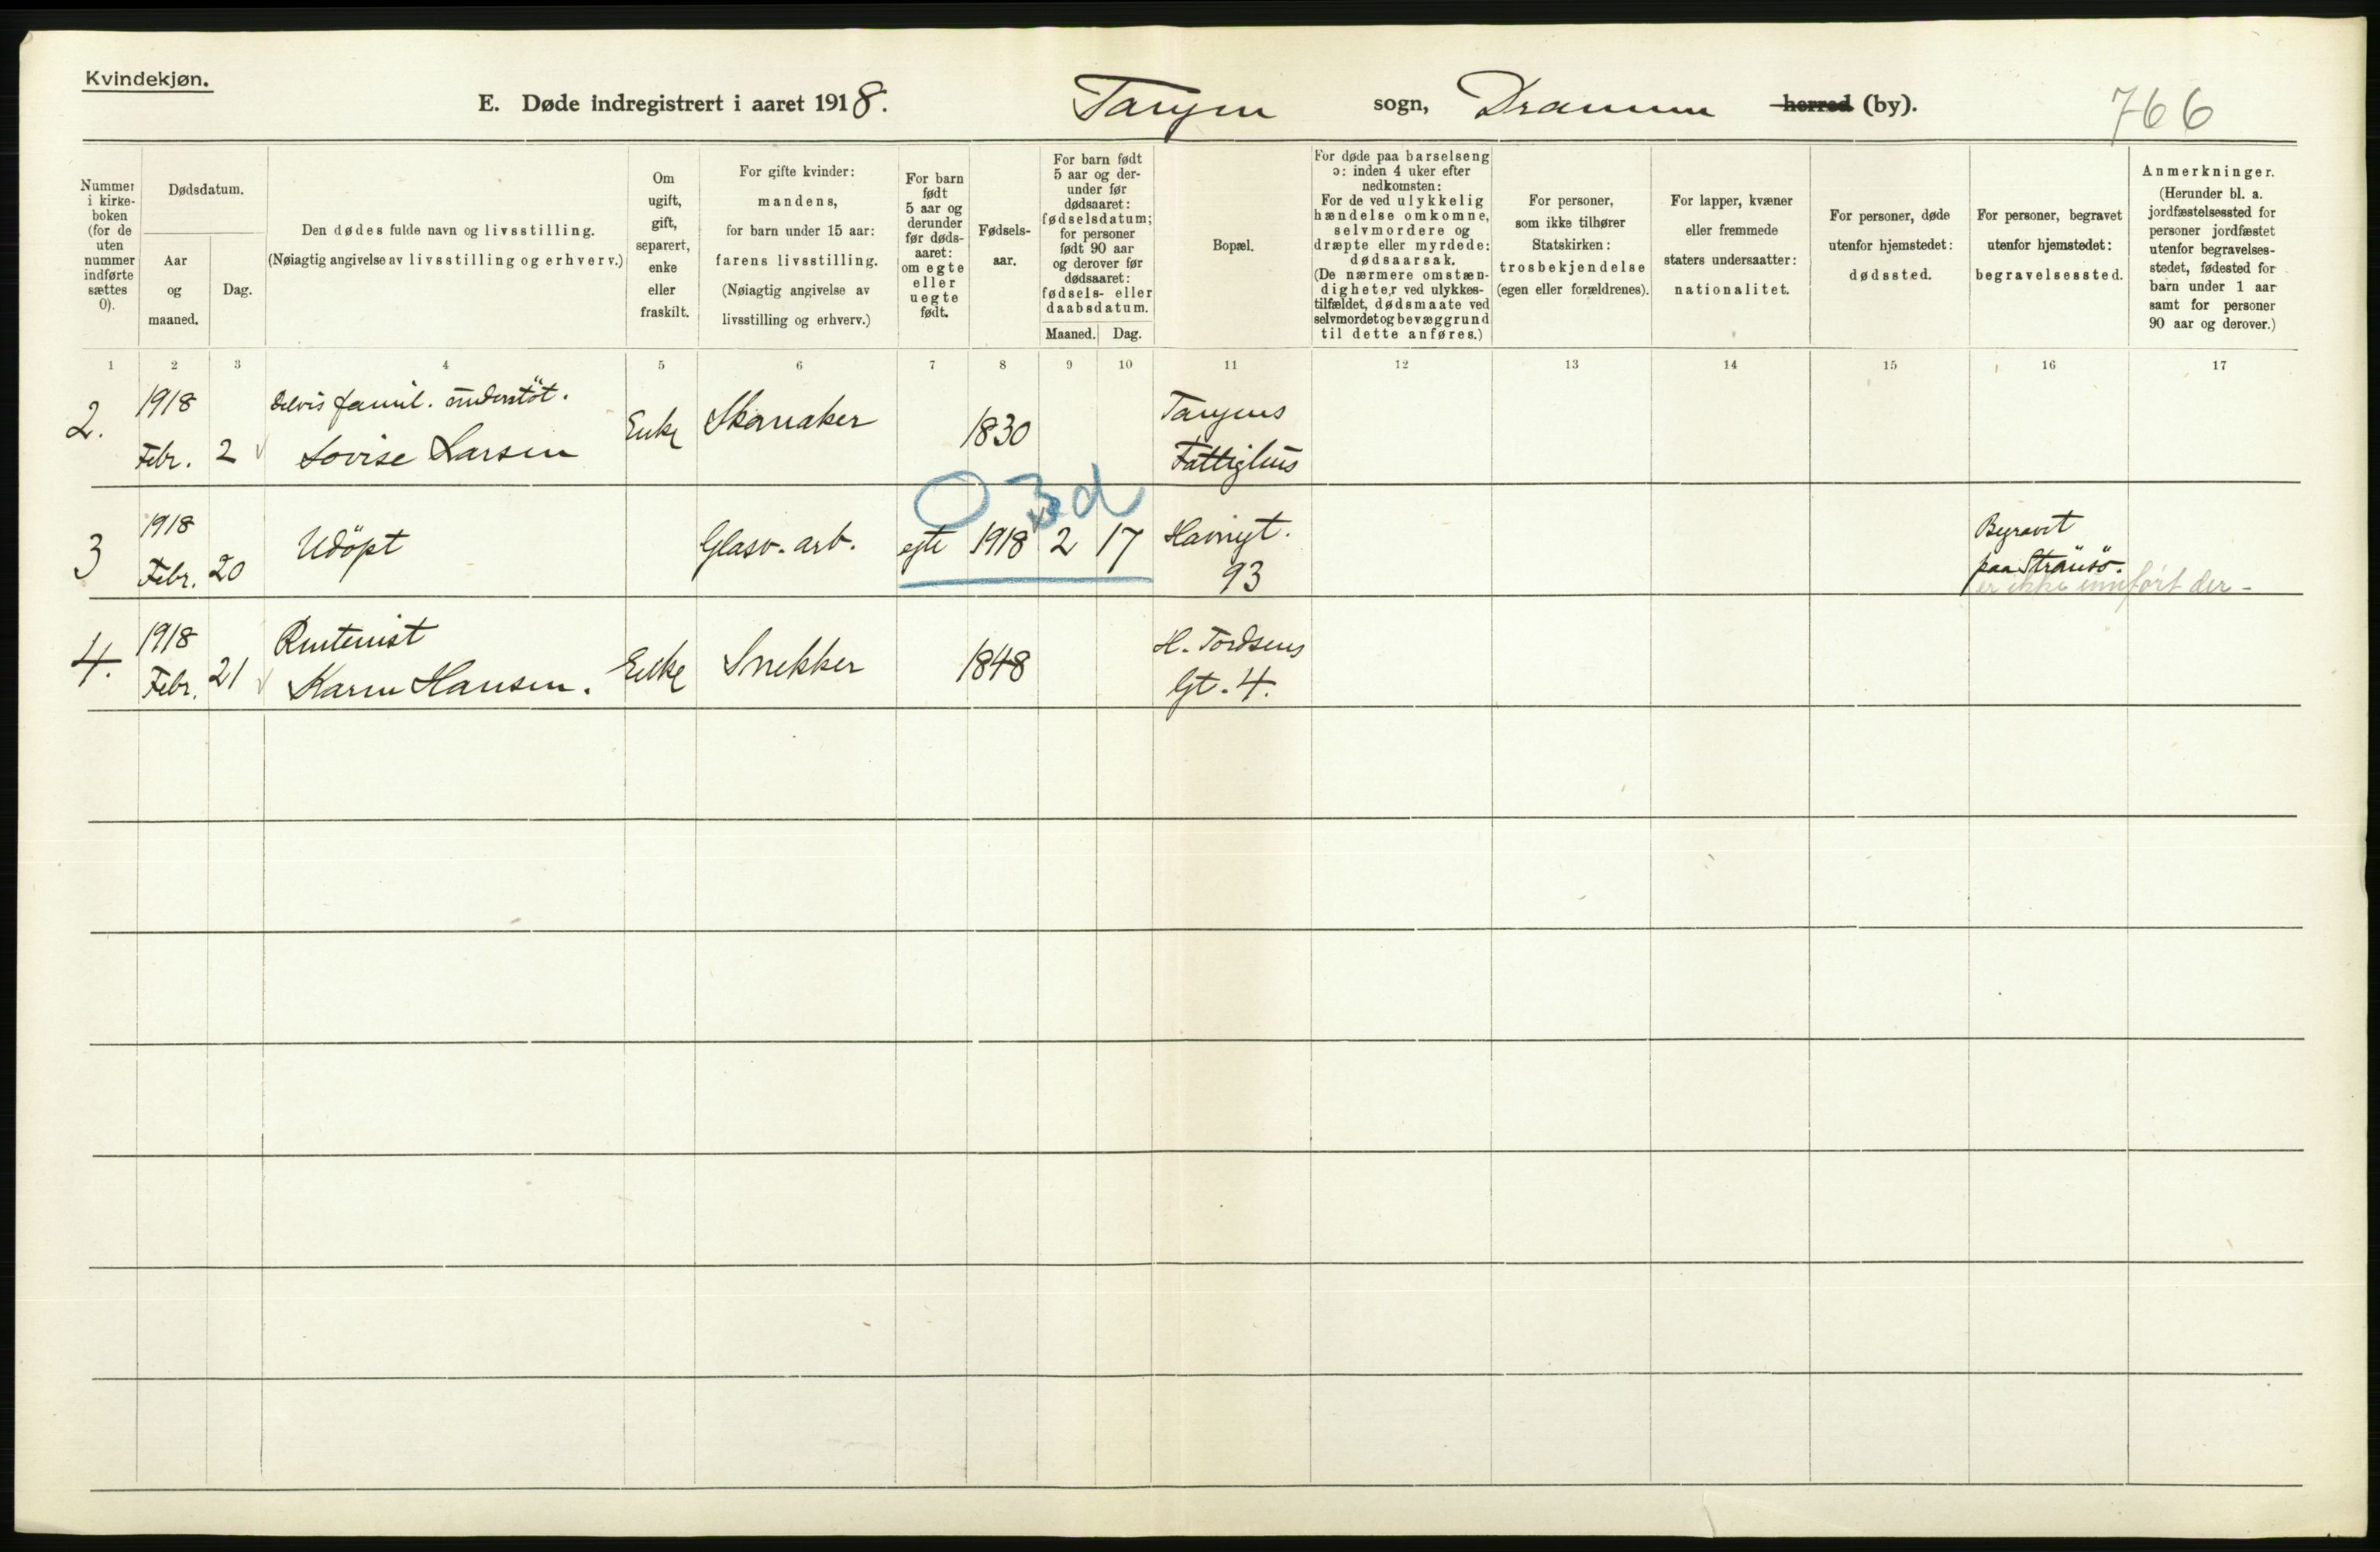 Kvindekjøn.
E. Døde indregistrert i aaret 1918. Tangen sogn, Drammen herred (by).
766
Nummer i kirkeboken (for de uten nummer indførte sættes 0).
Dødsdatum.
Aar og maaned.
Dag.
Den dødes fulde navn og livsstilling.
(Nøiagtig angivelse av livsstilling og erhverv.)
Om ugift, gift, separert, enke eller fraskilt.
For gifte kvinder: mandens, for barn under 15 aar: farens livsstilling. (Nøiagtig angivelse av livsstilling og erhverv.)
For barn født 5 aar og derunder før dødsaaret: om egte eller uegte født.
Fødselsaar.
For barn født 5 aar og derunder før dødsaaret: fødselsdatum; for personer født 90 aar og derover før dødsaaret: fødsels- eller daabsdatum.
Maaned. Dag.
Bopæl.
For døde paa barselseng ɔ: inden 4 uker efter nedkomsten: For de ved ulykkelig hændelse omkomne, selvmordere og dræpte eller myrdede: dødsaarsak. (De nærmere omstændigheter ved ulykkestilfældet, dødsmaate ved selvmordet og bevæggrund til dette anføres.)
For personer, som ikke tilhører Statskirken: trosbekjendelse (egen eller forældrenes).
For lapper, kvæner eller fremmede staters undersaatter: nationalitet.
For personer, døde utenfor hjemstedet: dødssted.
For personer, begravet utenfor hjemstedet: begravelsessted.
Anmerkninger. (Herunder bl. a. jordfæstelsessted for personer jordfæstet utenfor begravelsesstedet, fødested for barn under 1 aar samt for personer 90 aar og derover.)
1 2 3 4 5 6 7 8 9 10 11 12 13 14 15 16 17
2. 1918 Febr. 2 delvis famil. understöt. Lovise Larsen Enke Skomaker 1830 Tangens Fattighus
0 3 d
3 1918 Febr. 20 Udöpt Glasv. arb. egte 1918 2 17 Havnegt. 93 Begravet paa Strömsö.
er ikke innfört der -
4. 1918 Febr. 21 Rentenist Karen Hansen. Enke Snekker 1848 H. Tordsens Gt. 4.